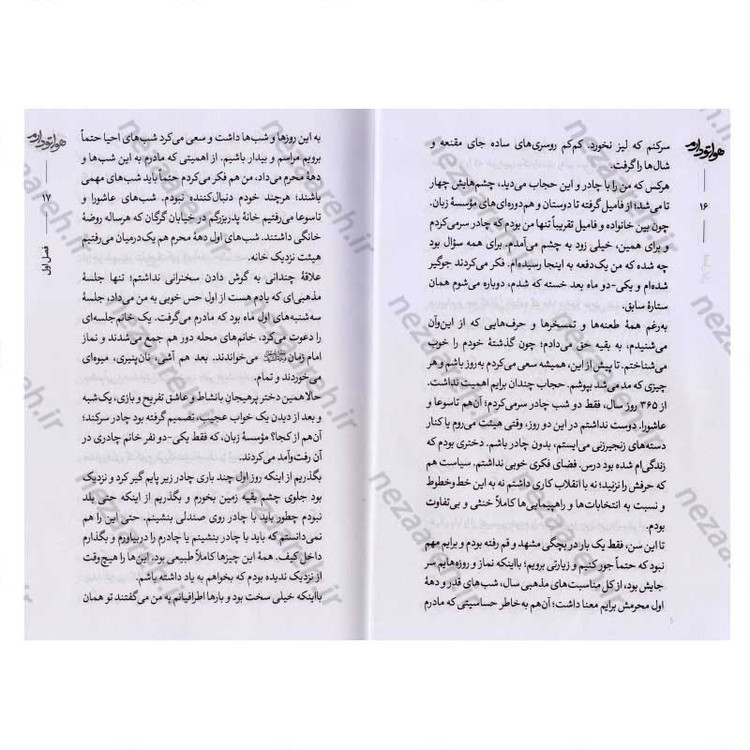 هواتو دارم
۱۶
سرکنم که لیز نخورد. کم‌کم روسری‌های ساده جای مقنعه و
شال‌ها را گرفت.
هرکس که من را با چادر و این حجاب می‌دید، چشم‌هایش چهار
تا می‌شد؛ از فامیل گرفته تا دوستان و هم‌دوره‌ای‌های مؤسسهٔ زبان.
چون بین خانواده و فامیل تقریباً تنها من بودم که چادر سرمی‌کردم
و برای همین، خیلی زود به چشم می‌آمدم. برای همه سؤال بود
چه شده که من یک‌دفعه به اینجا رسیده‌ام. فکر می‌کردند جوگیر
شده‌ام و یکی-دو ماه بعد خسته که شدم، دوباره می‌شوم همان
ستارهٔ سابق.
به‌رغم همهٔ طعنه‌ها و تمسخرها و حرف‌هایی که از این‌وآن
می‌شنیدم، به بقیه حق می‌دادم؛ چون گذشتهٔ خودم را خوب
می‌شناختم. تا پیش از این، همیشه سعی می‌کردم به‌روز باشم و هر
چیزی که مد می‌شد بپوشم. حجاب چندان برایم اهمیت نداشت.
از ۳۶۵ روز سال، فقط دو شب چادر سرمی‌کردم؛ آن‌هم تاسوعا و
عاشورا. دوست نداشتم در این دو روز، وقتی هیئت می‌روم یا کنار
دسته‌های زنجیرزنی می‌ایستم، بدون چادر باشم. دختری بودم که
زندگی‌ام شده بود درس. فضای فکری خوبی نداشتم. سیاست هم
که حرفش را نزنید؛ نه با انقلاب کاری داشتم نه به این خط‌وخطوط
و نسبت به انتخابات‌ها و راهپیمایی‌ها کاملاً خنثی و بی‌تفاوت
بودم.
تا این سن، فقط یک بار در بچگی مشهد و قم رفته بودم و برایم مهم
نبود که حتماً جور کنیم و زیارتی برویم؛ بااینکه نماز و روزه‌هایم سر
جایش بود، از کل مناسبت‌های مذهبی سال، شب‌های قدر و دههٔ
اول محرمش برایم معنا داشت؛ آن‌هم به خاطر حساسیتی که مادرم
هواتو دارم
۱۷
فصل اول
به این روزها و شب‌ها داشت و سعی می‌کرد شب‌های احیا حتماً
برویم مراسم و بیدار باشیم. از اهمیتی که مادرم به این شب‌ها و
دههٔ محرم می‌داد، من هم فکر می‌کردم حتماً باید شب‌های مهمی
باشند؛ هرچند خودم دنبال‌کننده نبودم. شب‌های عاشورا و
تاسوعا می‌رفتیم خانهٔ پدربزرگم در خیابان گرگان که هرساله روضهٔ
خانگی داشتند. شب‌های اول دههٔ محرم هم یک‌درمیان می‌رفتیم
هیئت نزدیک خانه.
علاقهٔ چندانی به گوش دادن سخنرانی نداشتم؛ تنها جلسهٔ
مذهبی‌ای که یادم هست از اول حس خوبی به من می‌داد، جلسهٔ
سه‌شنبه‌های اول ماه بود که مادرم می‌گرفت. یک خانم‌جلسه‌ای
را دعوت می‌کرد، خانم‌های محله دور هم جمع می‌شدند و نماز
امام زمان می‌خواندند. بعد هم آشی، نان‌پنیری، میوه‌ای
می‌خوردند و تمام.
حالا همین دختر پرهیجانِ بانشاط و عاشق تفریح و بازی، یک‌شبه
و بعد از دیدن یک خواب عجیب، تصمیم گرفته بود چادر سرکند؛
آن‌هم از کجا؟ مؤسسهٔ زبان، که فقط یکی-دو نفر خانم چادری در
آن رفت‌وآمد می‌کردند.
بگذریم از اینکه روز اول چند باری چادر زیر پایم گیر کرد و نزدیک
بود جلوی چشم بقیه زمین بخورم و بگذریم از اینکه حتی بلد
نبودم چطور باید با چادر روی صندلی بنشینم. حتی این را هم
نمی‌دانستم که باید با چادر بنشینم یا چادرم را دربیاورم و بگذارم
داخل کیف. همهٔ این چیزها کاملاً طبیعی بود. این‌ها را هیچ‌وقت
از نزدیک ندیده بودم که بخواهم به یاد داشته باشم.
بااینکه خیلی سخت بود و بارها اطرافیانم به من می‌گفتند تو همان
nezaareh.ir